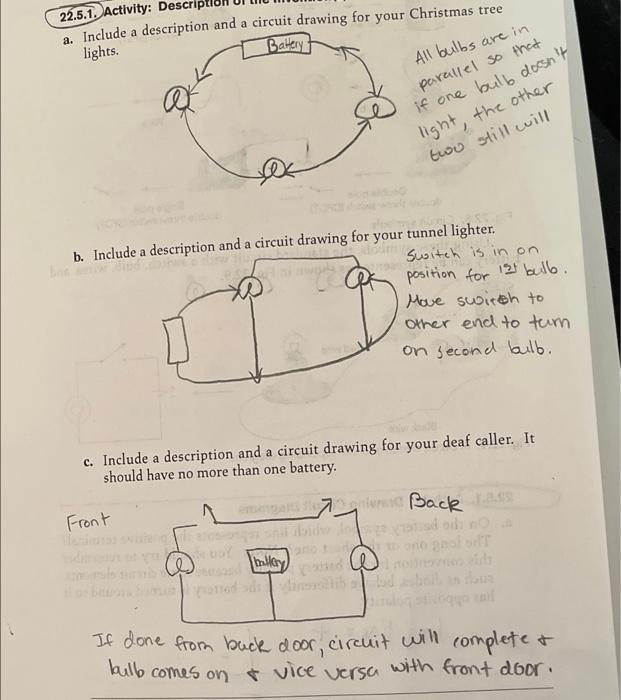 22.5.1. Activity: Description of the
a. Include a description and a circuit drawing for your Christmas tree
lights.
Battery
All bulbs are in
parallel so that
if one bulb doesn't
light, the other
two still will
b. Include a description and a circuit drawing for your tunnel lighter.
Switch is in on
position for 1st bulb.
Move switch to
other end to turn
on second bulb.
c. Include a description and a circuit drawing for your deaf caller. It
should have no more than one battery.
Front
Back
battery
If done from back door, circuit will complete &
bulb comes on & vice versa with front door.